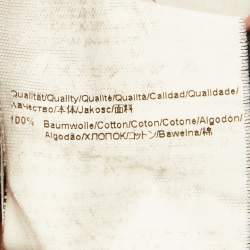 Qualität/Quality/Qualité/Qualità/Calidad/Qualidade/
Качество/本体/Jakość/面料
100% Baumwolle/Cotton/Coton/Cotone/Algodón/
Algodão/ХЛОПОК/コットン/Bawełna/棉